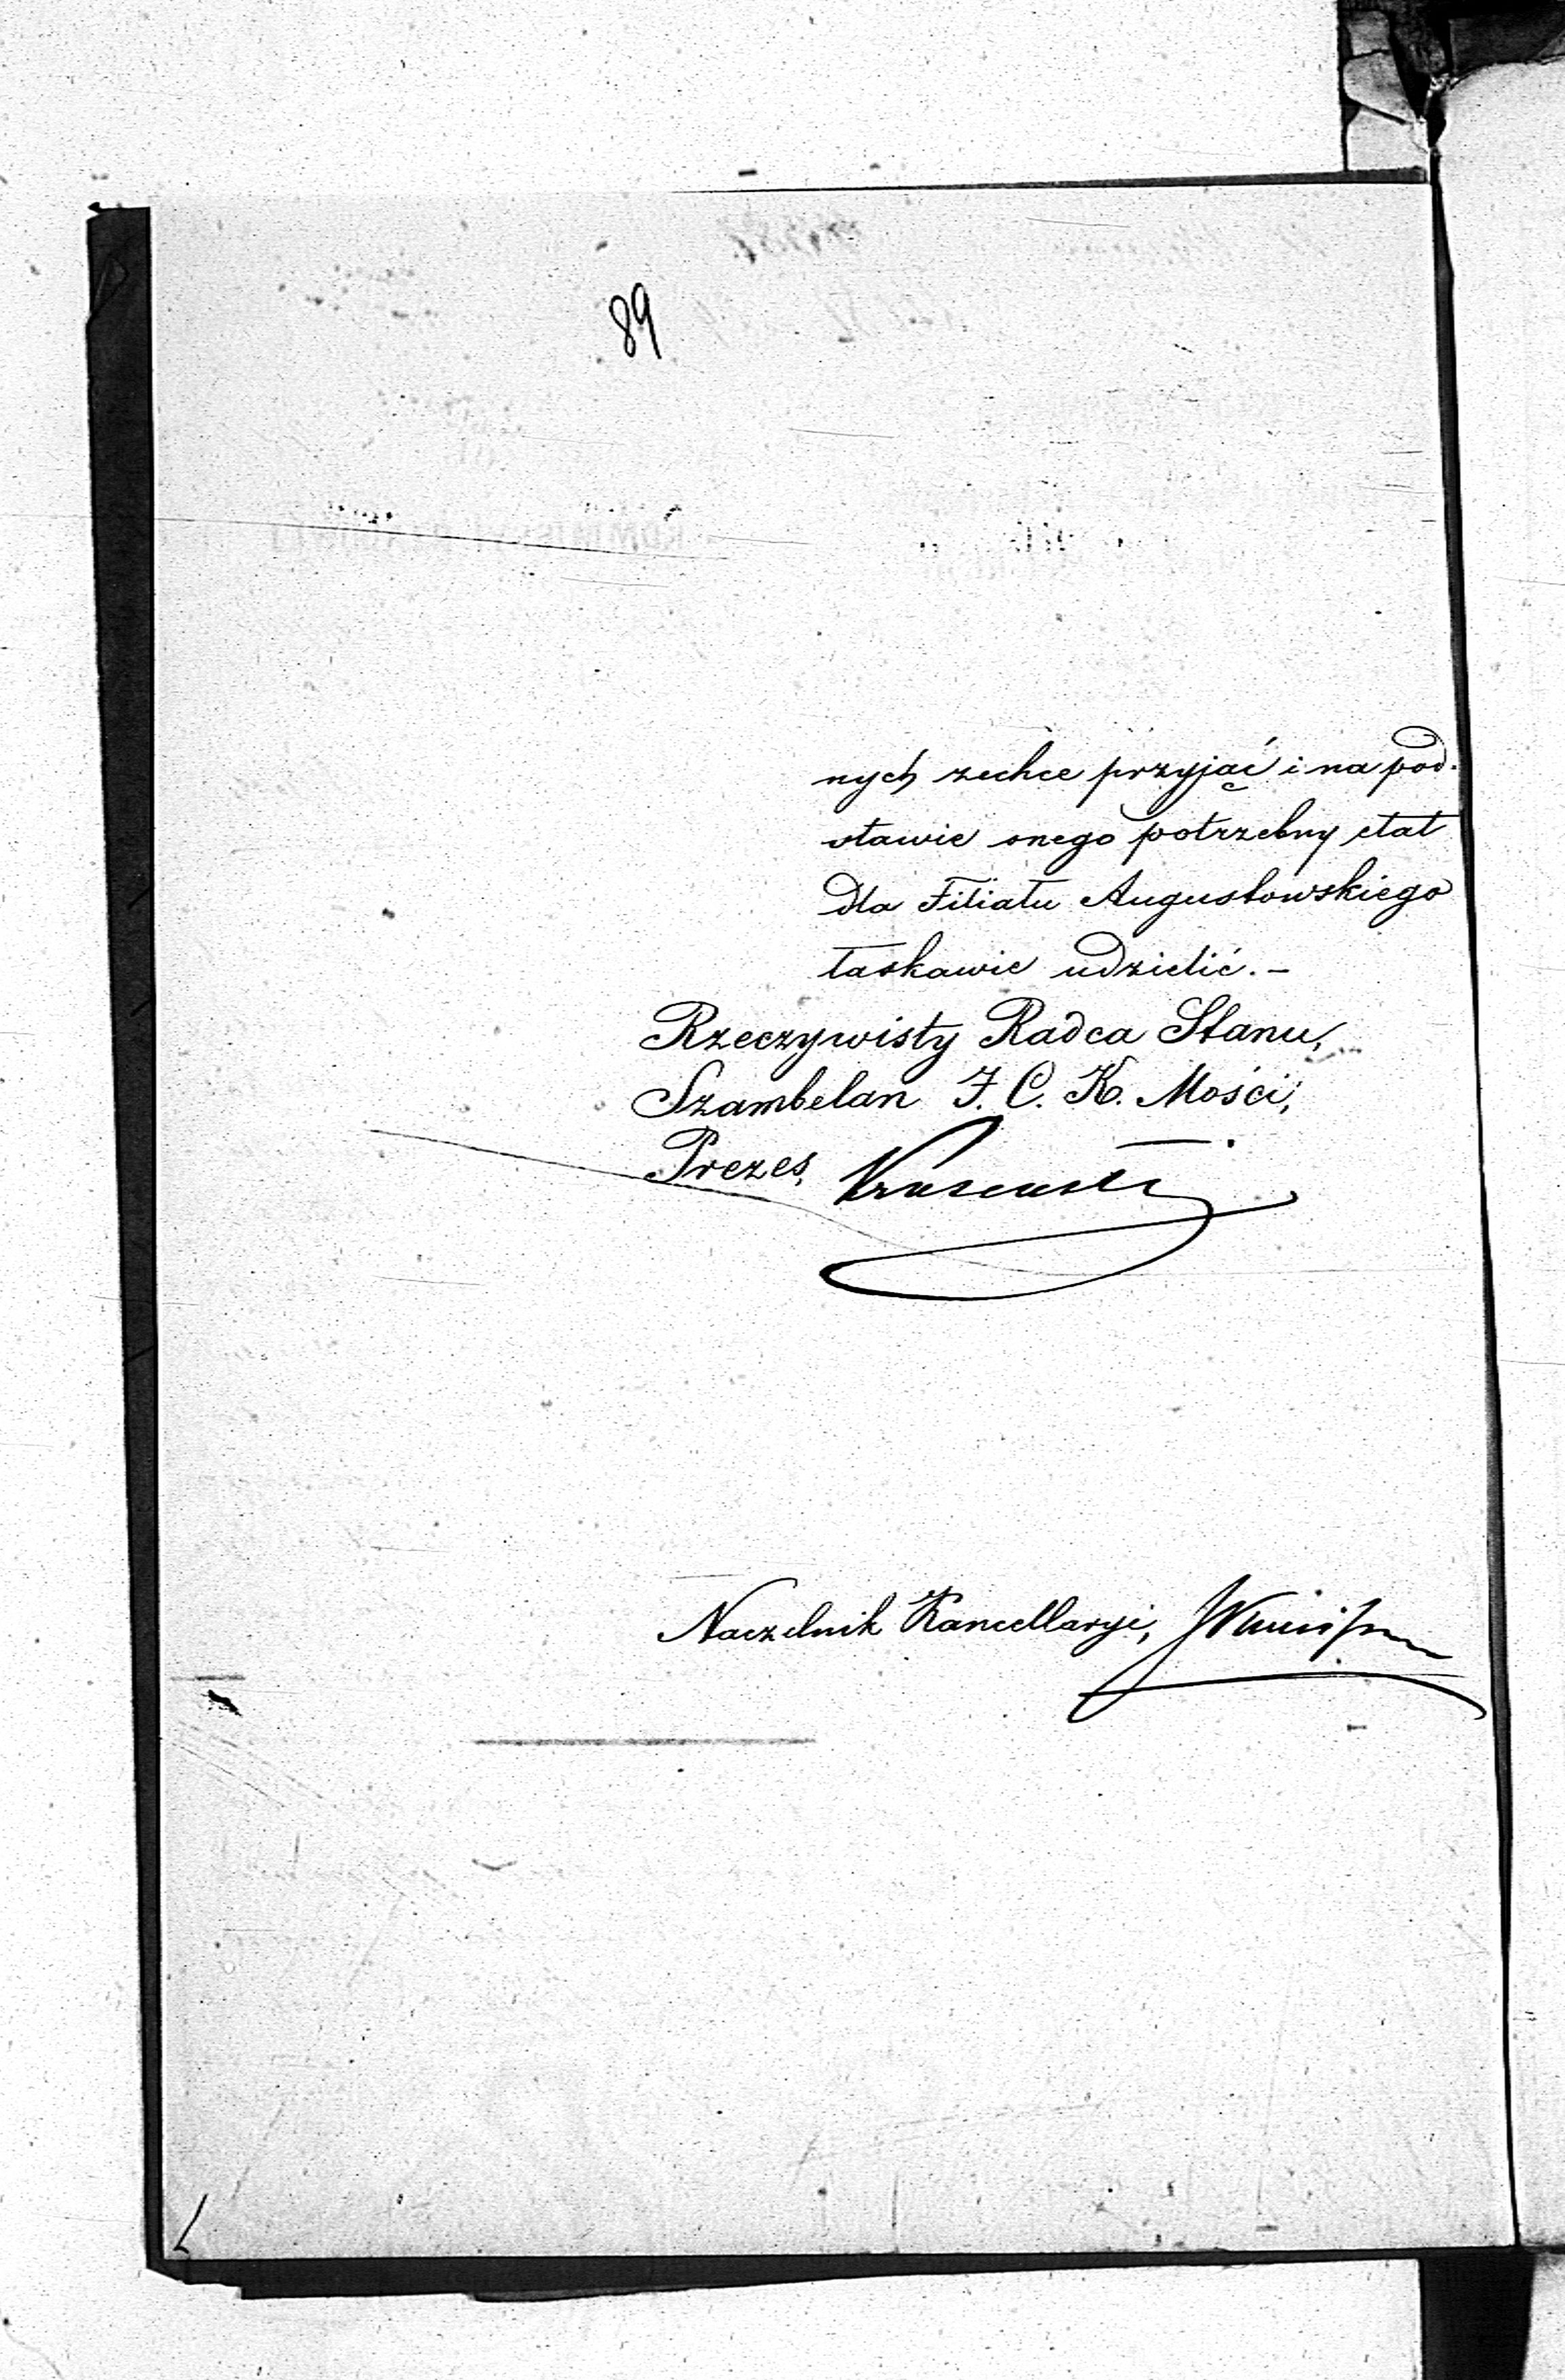 89
nych zechce przyjąć i na pod-
stawie onego potrzebny etat
dla Filiału Augustowskiego
łaskawie udzielić. –
Rzeczywisty Radca Stanu,
Szambelan J. C. K. Mości,
Prezes,
Naczelnik Kancellaryi,